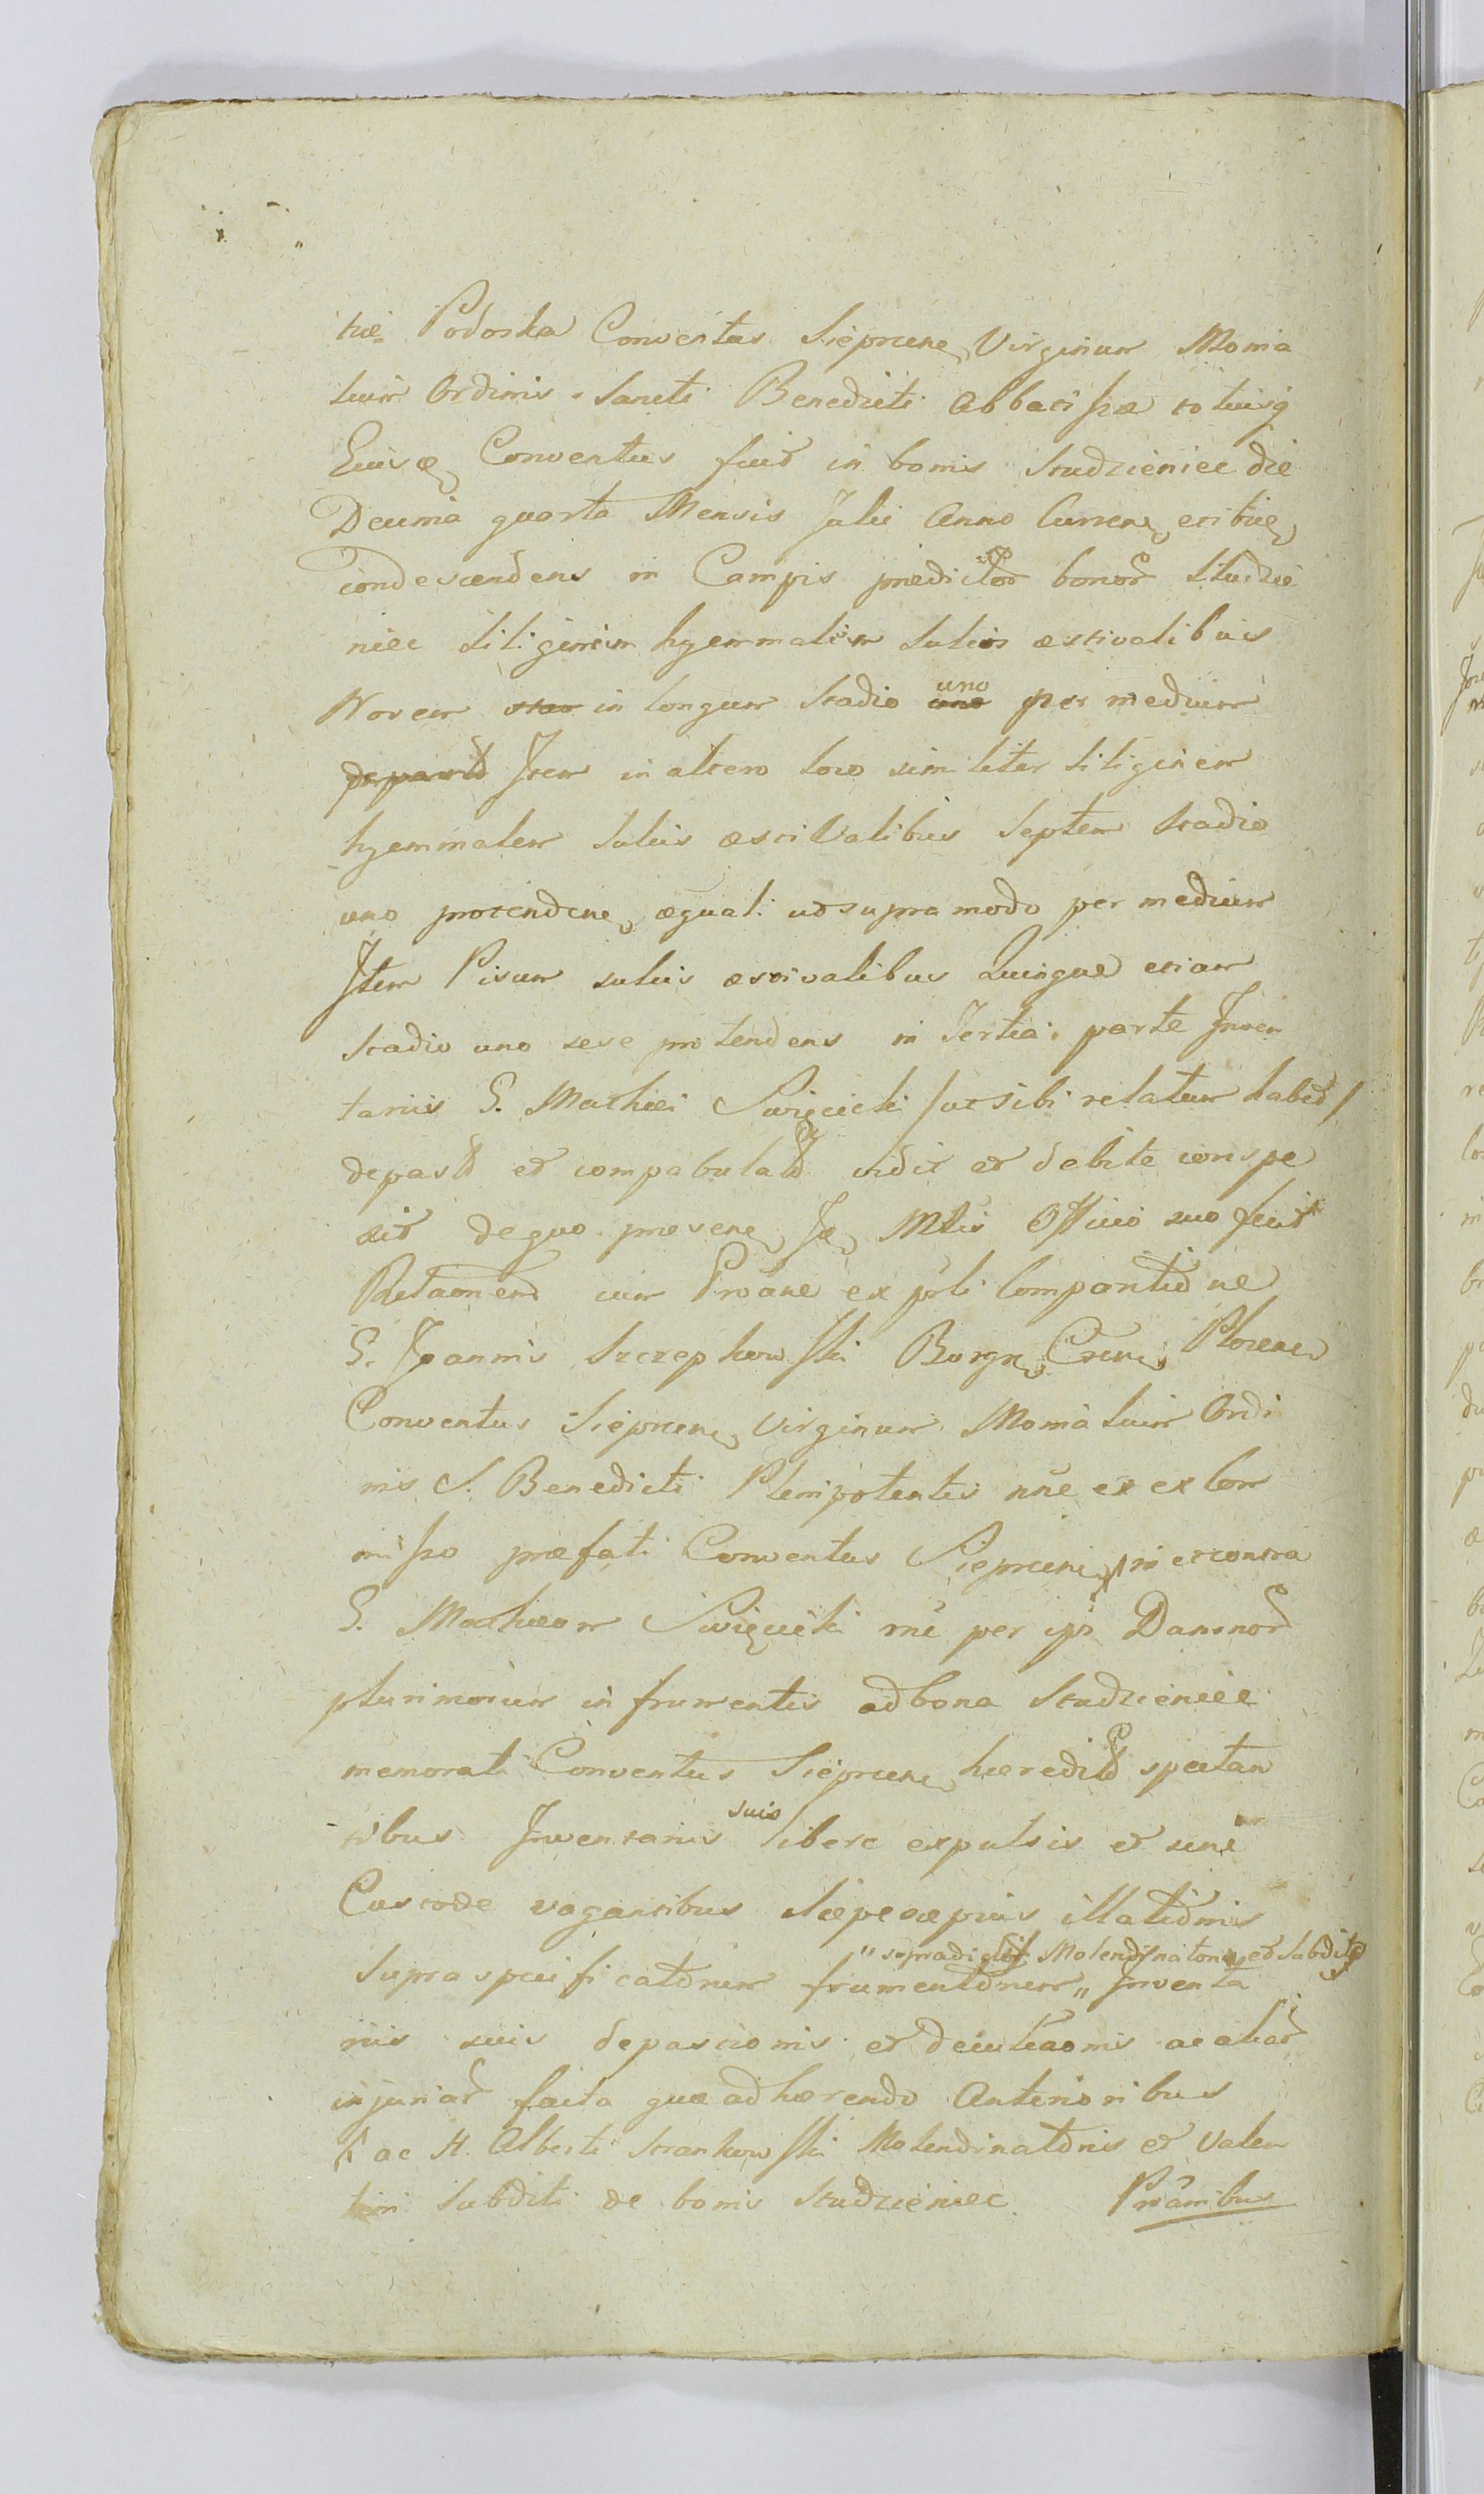 træ Podoska Conventus Sieprcene, Virginum Monia
lium Ordinis Sancti Benedicti Abbatissæ totiusq
Eiusq, Conventus fuit in bonis Studzieniec die
Decima quarta Mensis Julii Anno Curren, eribue,
condescendens in Campis prædictor bonor Studzie
niec siliginem hyemmalem sulcis æstivalibus
Novem in longum stadio uno per medium
Item in altero loco similiter siliginem
hyemmalem Sulcis æstivalibus Septem Stadio
uno protendene, æquali ut supra modo per medium
Item Pisum sulcis æstivalibus Quinque etiam
Stadio uno sese protendens in Tertia parte Inven
tariis G. Mathæi Swięcicki /ut sibi relatum habet/
depast et compabulat vidit et debite conspe
xit de quo præsene, Je, Mtis Officio suo fecit
Relaonem cum Proane ex prti Comparitione
G. Joannis Szczepkowski Burgr, Crene, Plocene
Conventus Sieprcene, Virginum Monialium Ordi
nis S. Benedicti Plenipotentis nñe et ex Com
misso præfati Conventus Sieprcene, in et contra
G. Mathæum Swięcicki rñe per ips Damnor
plurimorum in frumentis ad bona Studzieniec
memorati Conventus Sieprcene, hæredit spectan
tibus Inventariis suis libere expulsis et sine
Custode vagantibus sæpesæpius illationis
supraspecificatorum frumentorum „ Inventa
" supradictor Molendinatoris et Subditi
riis suis depastionis et deculcaonis ac aliar
injuriar facta quæ adhærendo Anterioribus
ac H. Alberti Strankowski Molendinatoris et Valen
tini Subditi de bonis Studzieniec Proanibus